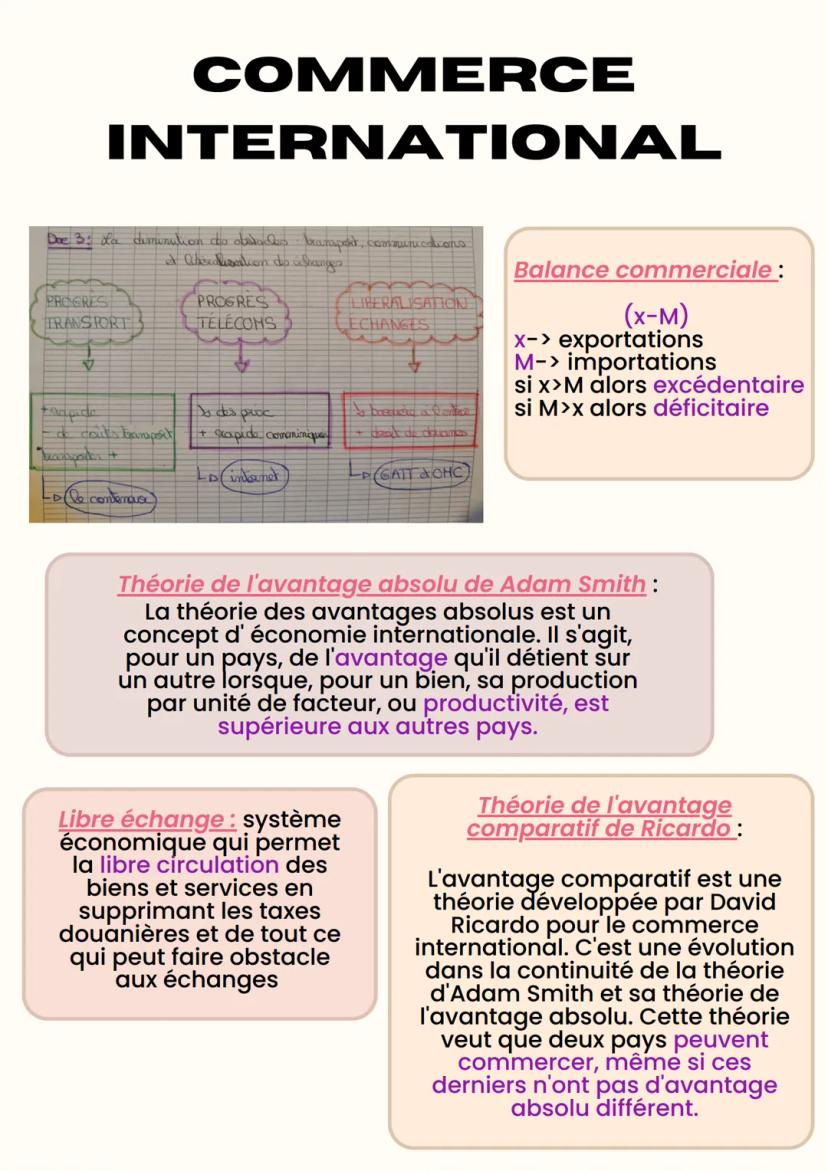 COMMERCE
INTERNATIONAL
Doc 3: La diminution des obstacles : transport, communications
et libéralisation des échanges
PROGRÈS
TRANSPORT
PROGRÈS
TÉLÉCOMS
LIBERALISATION
ÉCHANGES
+ rapide
- de coûts transport
transporter +
↳ le conteneur
↘ des prix
+ rapide communiquer
↳ internet
↘ à
+ droit de douanes
↳ GATT et OMC
Balance commerciale :
(x-M)
x-> exportations
M-> importations
si x>M alors excédentaire
si M>x alors déficitaire
Théorie de l'avantage absolu de Adam Smith :
La théorie des avantages absolus est un
concept d' économie internationale. Il s'agit,
pour un pays, de l'avantage qu'il détient sur
un autre lorsque, pour un bien, sa production
par unité de facteur, ou productivité, est
supérieure aux autres pays.
Libre échange : système
économique qui permet
la libre circulation des
biens et services en
supprimant les taxes
douanières et de tout ce
qui peut faire obstacle
aux échanges
Théorie de l'avantage
comparatif de Ricardo :
L'avantage comparatif est une
théorie développée par David
Ricardo pour le commerce
international. C'est une évolution
dans la continuité de la théorie
d'Adam Smith et sa théorie de
l'avantage absolu. Cette théorie
veut que deux pays peuvent
commercer, même si ces
derniers n'ont pas d'avantage
absolu différent.